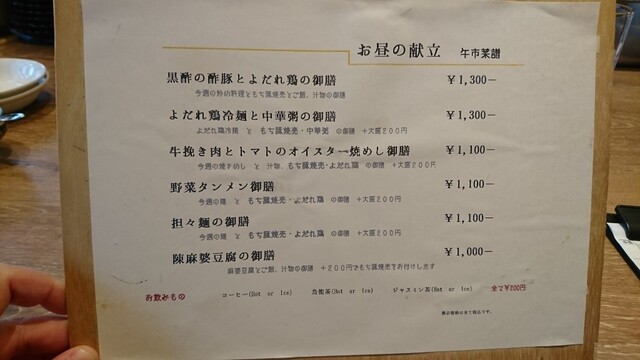 お昼の献立 午市菜譜
黒酢の酢豚とよだれ鶏の御膳 ¥1,300ー
今週の炒め料理ともち豚焼売とご飯、汁物の御膳
よだれ鶏冷麺と中華粥の御膳 ¥1,300ー
よだれ鶏冷麺 と もち豚焼売・中華粥 の御膳 +大盛200円
牛挽き肉とトマトのオイスター焼めし御膳 ¥1,100ー
今週の焼きめし と 汁物、もち豚焼売・よだれ鶏 の御膳 +大盛200円
野菜タンメン御膳 ¥1,100ー
今週の麺 と もち豚焼売・よだれ鶏 の御膳 +大盛200円
担々麺の御膳 ¥1,100ー
今週の麺 と もち豚焼売・よだれ鶏 の御膳 +大盛200円
陳麻婆豆腐の御膳 ¥1,000ー
麻婆豆腐とご飯、汁物の御膳 +200円でもち豚焼売をお付けします
お飲みもの コーヒー(Hot or Ice) 烏龍茶(Hot or Ice) ジャスミン茶(Hot or Ice) 全て¥200円
商品価格は全て税込です。